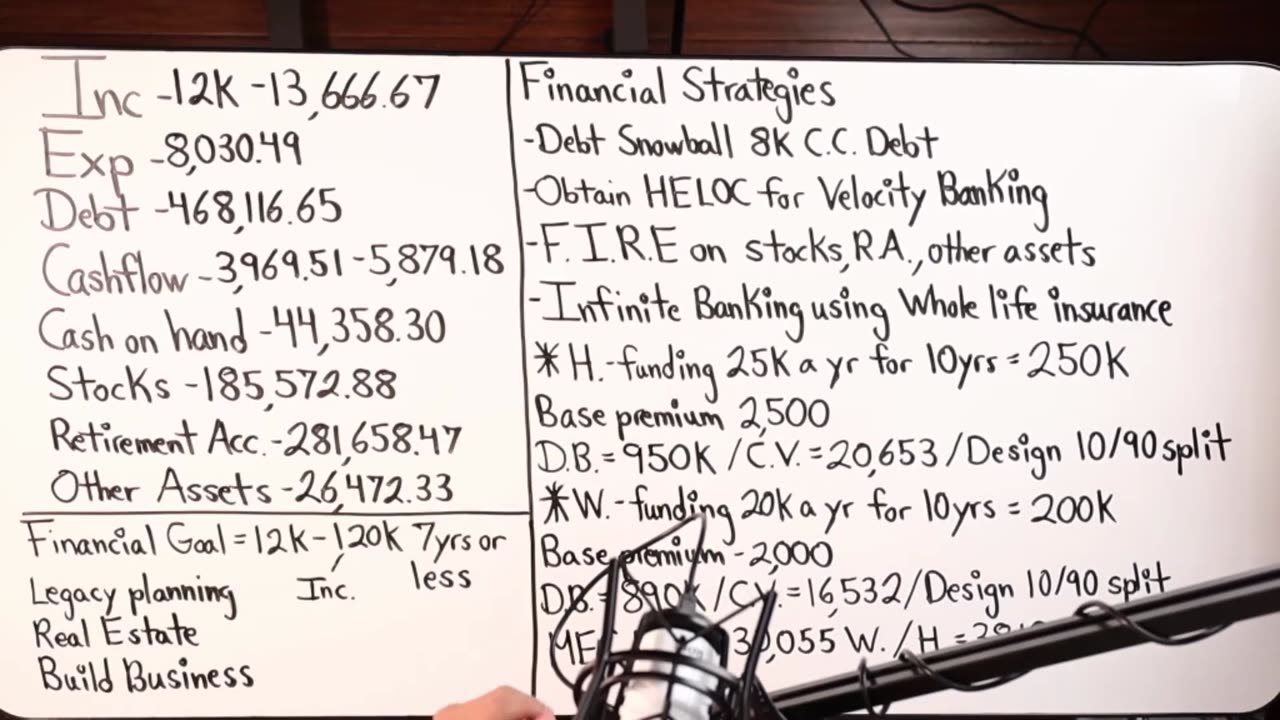 Inc -12K -13,666.67
Exp -8,030.49
Debt -468,116.65
Cashflow -3,969.51 -5,879.18
Cash on hand -44,358.30
Stocks -185,572.88
Retirement Acc. -281,658.47
Other Assets -26,472.33
Financial Goal = 12K - 120K 7yrs or less
Legacy planning Inc.
Real Estate
Build Business
Financial Strategies
-Debt Snowball 8K C.C. Debt
-Obtain HELOC for Velocity Banking
-F.I.R.E on stocks, R.A., other assets
-Infinite Banking using Whole life insurance
*H.-funding 25K a yr for 10yrs = 250K
Base premium 2,500
D.B. = 950K / C.V. = 20,653 / Design 10/90 split
*W.-funding 20K a yr for 10yrs = 200K
Base premium - 2,000
D.B. = 890K / C.V. = 16,532 / Design 10/90 split
30,055 W. / H =